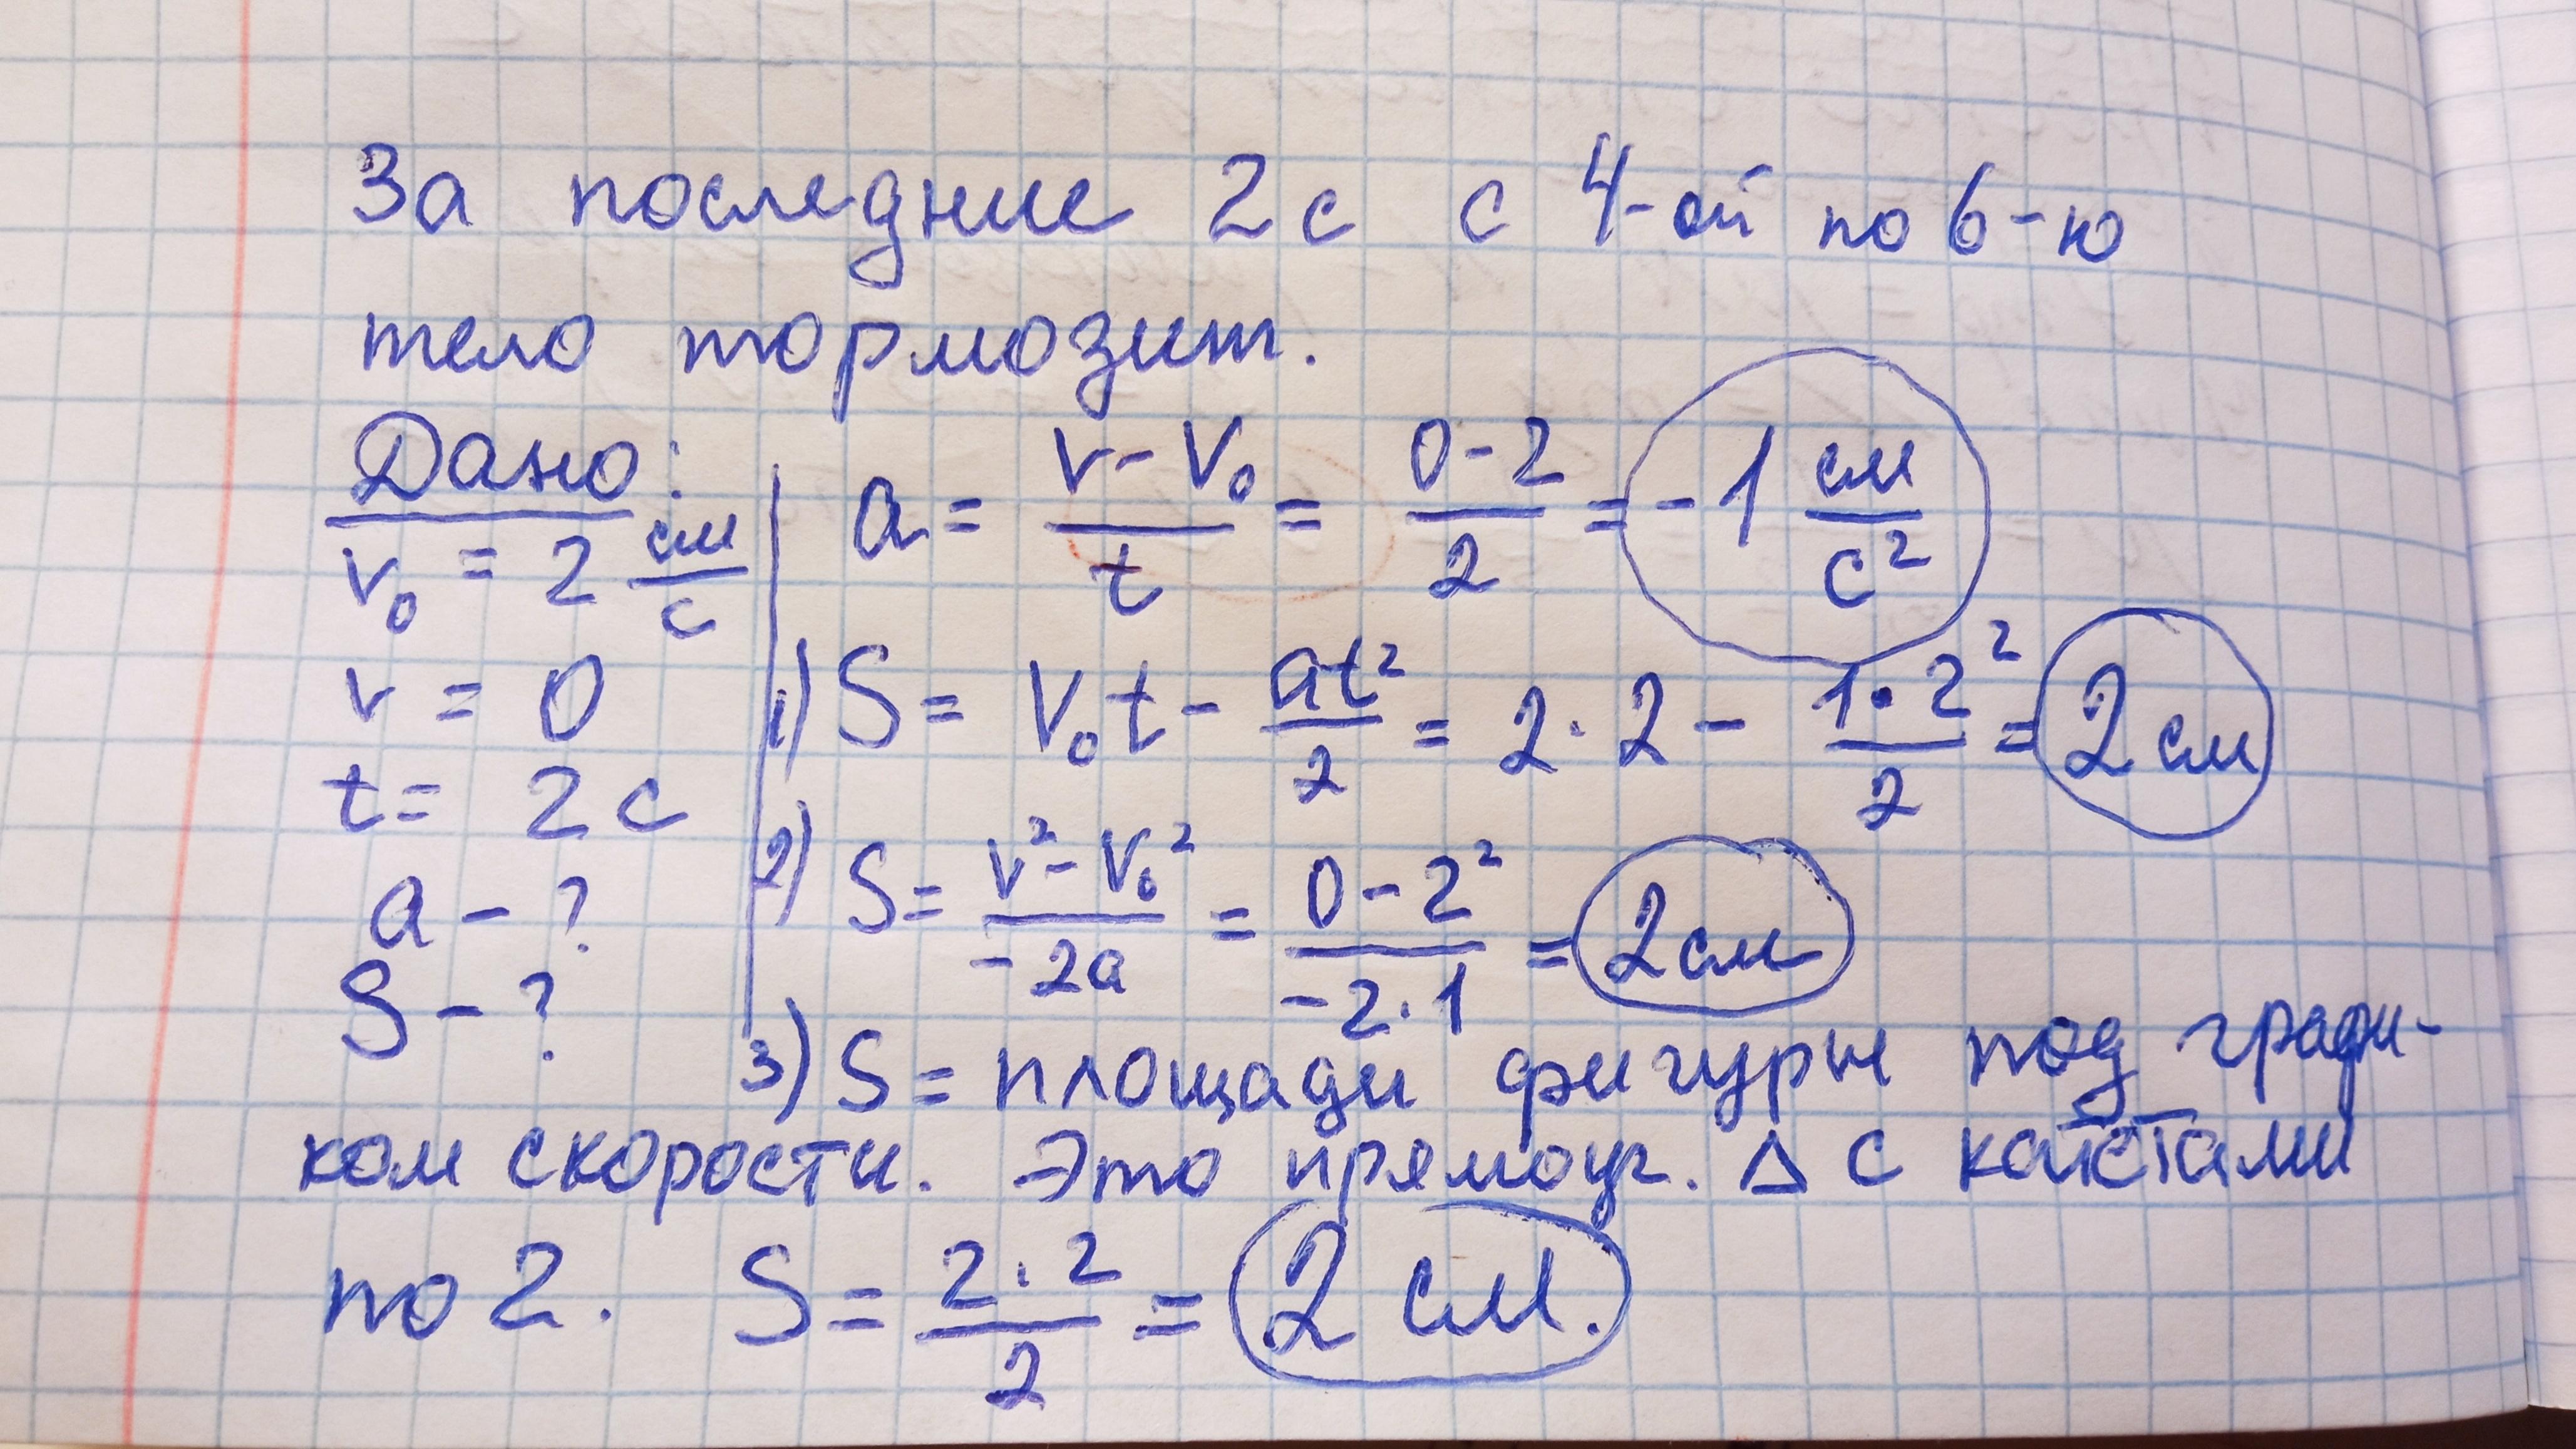 За последние 2с с 4-ой по 6-ю
тело тормозит.
Дано:
v₀ = 2 см/с
v = 0
t = 2 с
a - ?
S - ?
a = (v - v₀)/t = (0 - 2)/2 = -1 см/с²
1) S = v₀t - at²/2 = 2·2 - 1·2²/2 = 2 см
2) S = (v² - v₀²)/-2a = (0 - 2²)/-2·1 = 2 см
3) S = площади фигуры под графи-
ком скорости. Это прямоуг. Δ с катетами
по 2. S = 2·2/2 = 2 см.